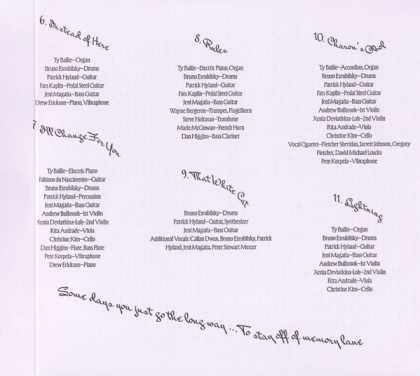 6. Instead of Here
Ty Bailie–Organ
Bruno Esrubilsky–Drums
Patrick Hyland–Guitar
Fats Kaplin–Pedal Steel Guitar
Jeni Magaña–Bass Guitar
Drew Erickson–Piano, Vibraphone
7. I'll Change For You
Ty Bailie–Electric Piano
Fabiano do Nascimento–Guitar
Bruno Esrubilsky–Drums
Patrick Hyland–Percussion
Jeni Magaña–Bass Guitar
Andrew Bulbrook–1st Violin
Xenia Deviatkina-Loh–2nd Violin
Rita Andrade–Viola
Christine Kim–Cello
Dan Higgins–Flute, Bass Flute
Pete Korpela–Vibraphone
Drew Erickson–Piano
8. Rules
Ty Bailie–Electric Piano, Organ
Bruno Esrubilsky–Drums
Patrick Hyland–Guitar
Fats Kaplin–Pedal Steel Guitar
Jeni Magaña–Bass Guitar
Wayne Bergeron–Trumpet, Flugelhorn
Steve Holtman–Trombone
Mark McGowan–French Horn
Dan Higgins–Bass Clarinet
9. That White Cat
Bruno Esrubilsky–Drums
Patrick Hyland–Guitar, Synthesizer
Jeni Magaña–Bass Guitar
Additional Vocals: Callan Dwan, Bruno Esrubilsky, Patrick
Hyland, Jeni Magaña, Peter Stewart Mercer
10. Charon's
Ty Bailie–Accordion, Organ
Bruno Esrubilsky–Drums
Patrick Hyland–Guitar
Fats Kaplin–Pedal Steel Guitar
Jeni Magaña–Bass Guitar
Andrew Bulbrook–1st Violin
Xenia Deviatkina-Loh–2nd Violin
Rita Andrade–Viola
Christine Kim–Cello
Vocal Quartet–Fletcher Sheridan, Jarrett Johnson, Gregory
Fletcher, David Michael Loucks
Pete Korpela–Vibraphone
11. Lightning
Ty Bailie–Organ
Bruno Esrubilsky–Drums
Patrick Hyland–Guitar
Jeni Magaña–Bass Guitar
Andrew Bulbrook–1st Violin
Xenia Deviatkina-Loh–2nd Violin
Rita Andrade–Viola
Christine Kim–Cello
Some days you just go the long way ... To stay off of memory lane